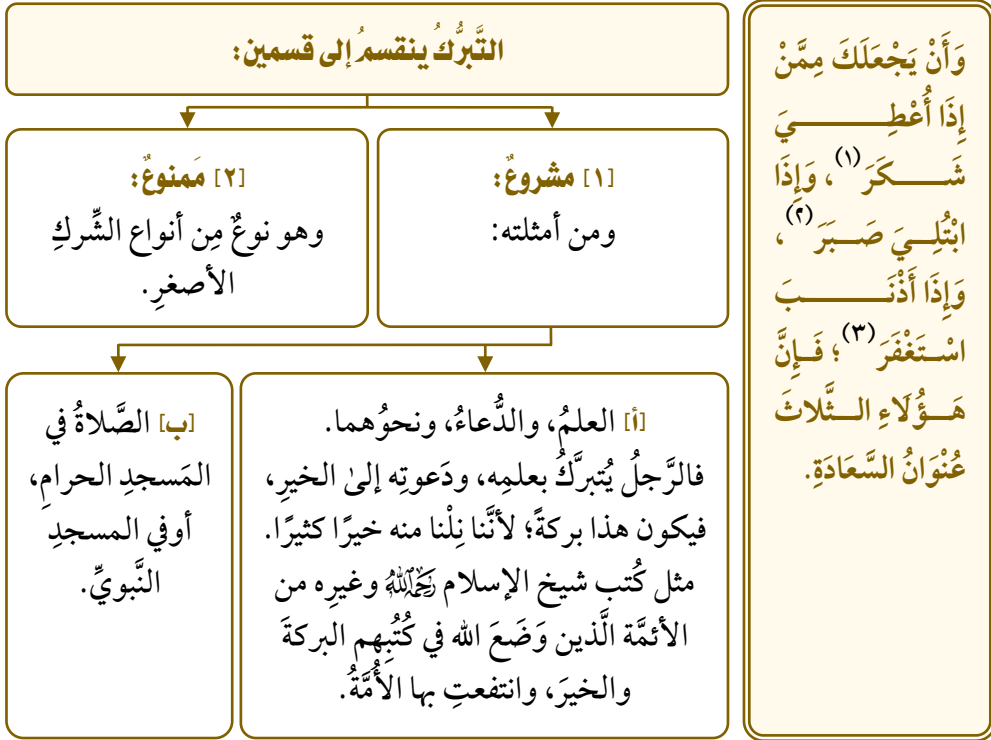 وَأَنْ يَجْعَلَكَ مِمَّنْ
إِذَا أُعْطِيَ
شَكَرَ (١)، وَإِذَا
ابْتُلِيَ صَبَرَ (٢)،
وَإِذَا أَذْنَبَ
اسْتَغْفَرَ (٣)؛ فَإِنَّ
هَؤُلَاءِ الثَّلاثَ
عُنْوَانُ السَّعَادَةِ.
التَّبرُّكُ ينقسمُ إلى قسمين:
[١] مشروعٌ:
ومن أمثلته:
[٢] مَمنوعٌ:
وهو نوعٌ مِن أنواع الشِّركِ
الأصغرِ.
[أ] العلمُ، والدُّعاءُ، ونحوُهما.
فالرَّجلُ يُتبرَّكُ بعلمِه، ودَعوتِه إلىٰ الخيرِ،
فيكون هذا بركةً؛ لأنَّنا نِلْنا منه خيرًا كثيرًا.
مثل كُتب شيخ الإسلام رَحِمَهُ اللَّهُ وغيرِه من
الأئمَّة الَّذين وَضَعَ الله في كُتُبِهم البركةَ
والخيرَ، وانتفعتِ بها الأُمَّةُ.
[ب] الصَّلاةُ في
المَسجدِ الحرامِ،
أوفي المسجدِ
النَّبويِّ.